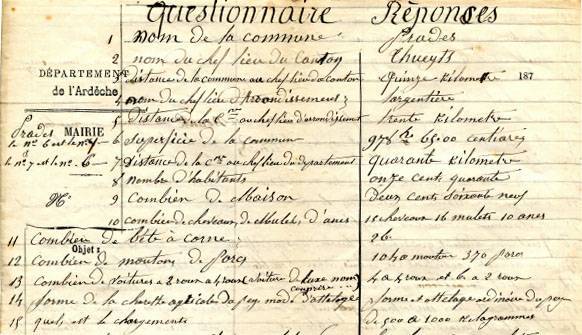 Questionnaire Réponses
1 nom de la commune Prades
2 nom du chef lieu du Canton Thueyts
3 distance de la commune au chef lieu du canton quinze kilometre 187
DÉPARTEMENT
de l'Ardèche
4 nom du chef lieu d'Arrondissement; Largentière
5 distance de la Cne au chef lieu d'arrondissement trente kilometre
Prades MAIRIE
le nº 6 et le nº 7
6 superficie de la commun 978 65.00 centiares
le nº 7 et le nº 6
7 distance de la Cne au chef lieu du departement quarante kilometre
8 nombre d'habitants onze cent quarante
Nº
9 Combien de Maison deux cent soixante neuf
10 combien de chevaux, de Mulets, d'anes 15 chevaux 16 mulets 10 anes
11 Combien de bête à corne: 26
Objet:
12 Combien de moutons de porcs 1040 mouton 370 porcs
13 Combien de voitures a 2 roux a 4 roux voiture de luxe non comprise 4 a 4 roux et 60 a 2 roux
14 forme de la charette agricole du pay mode d'attelage forme et attelage du pay
15 quel est le chargements de 500 a 1000 Kilogrammes